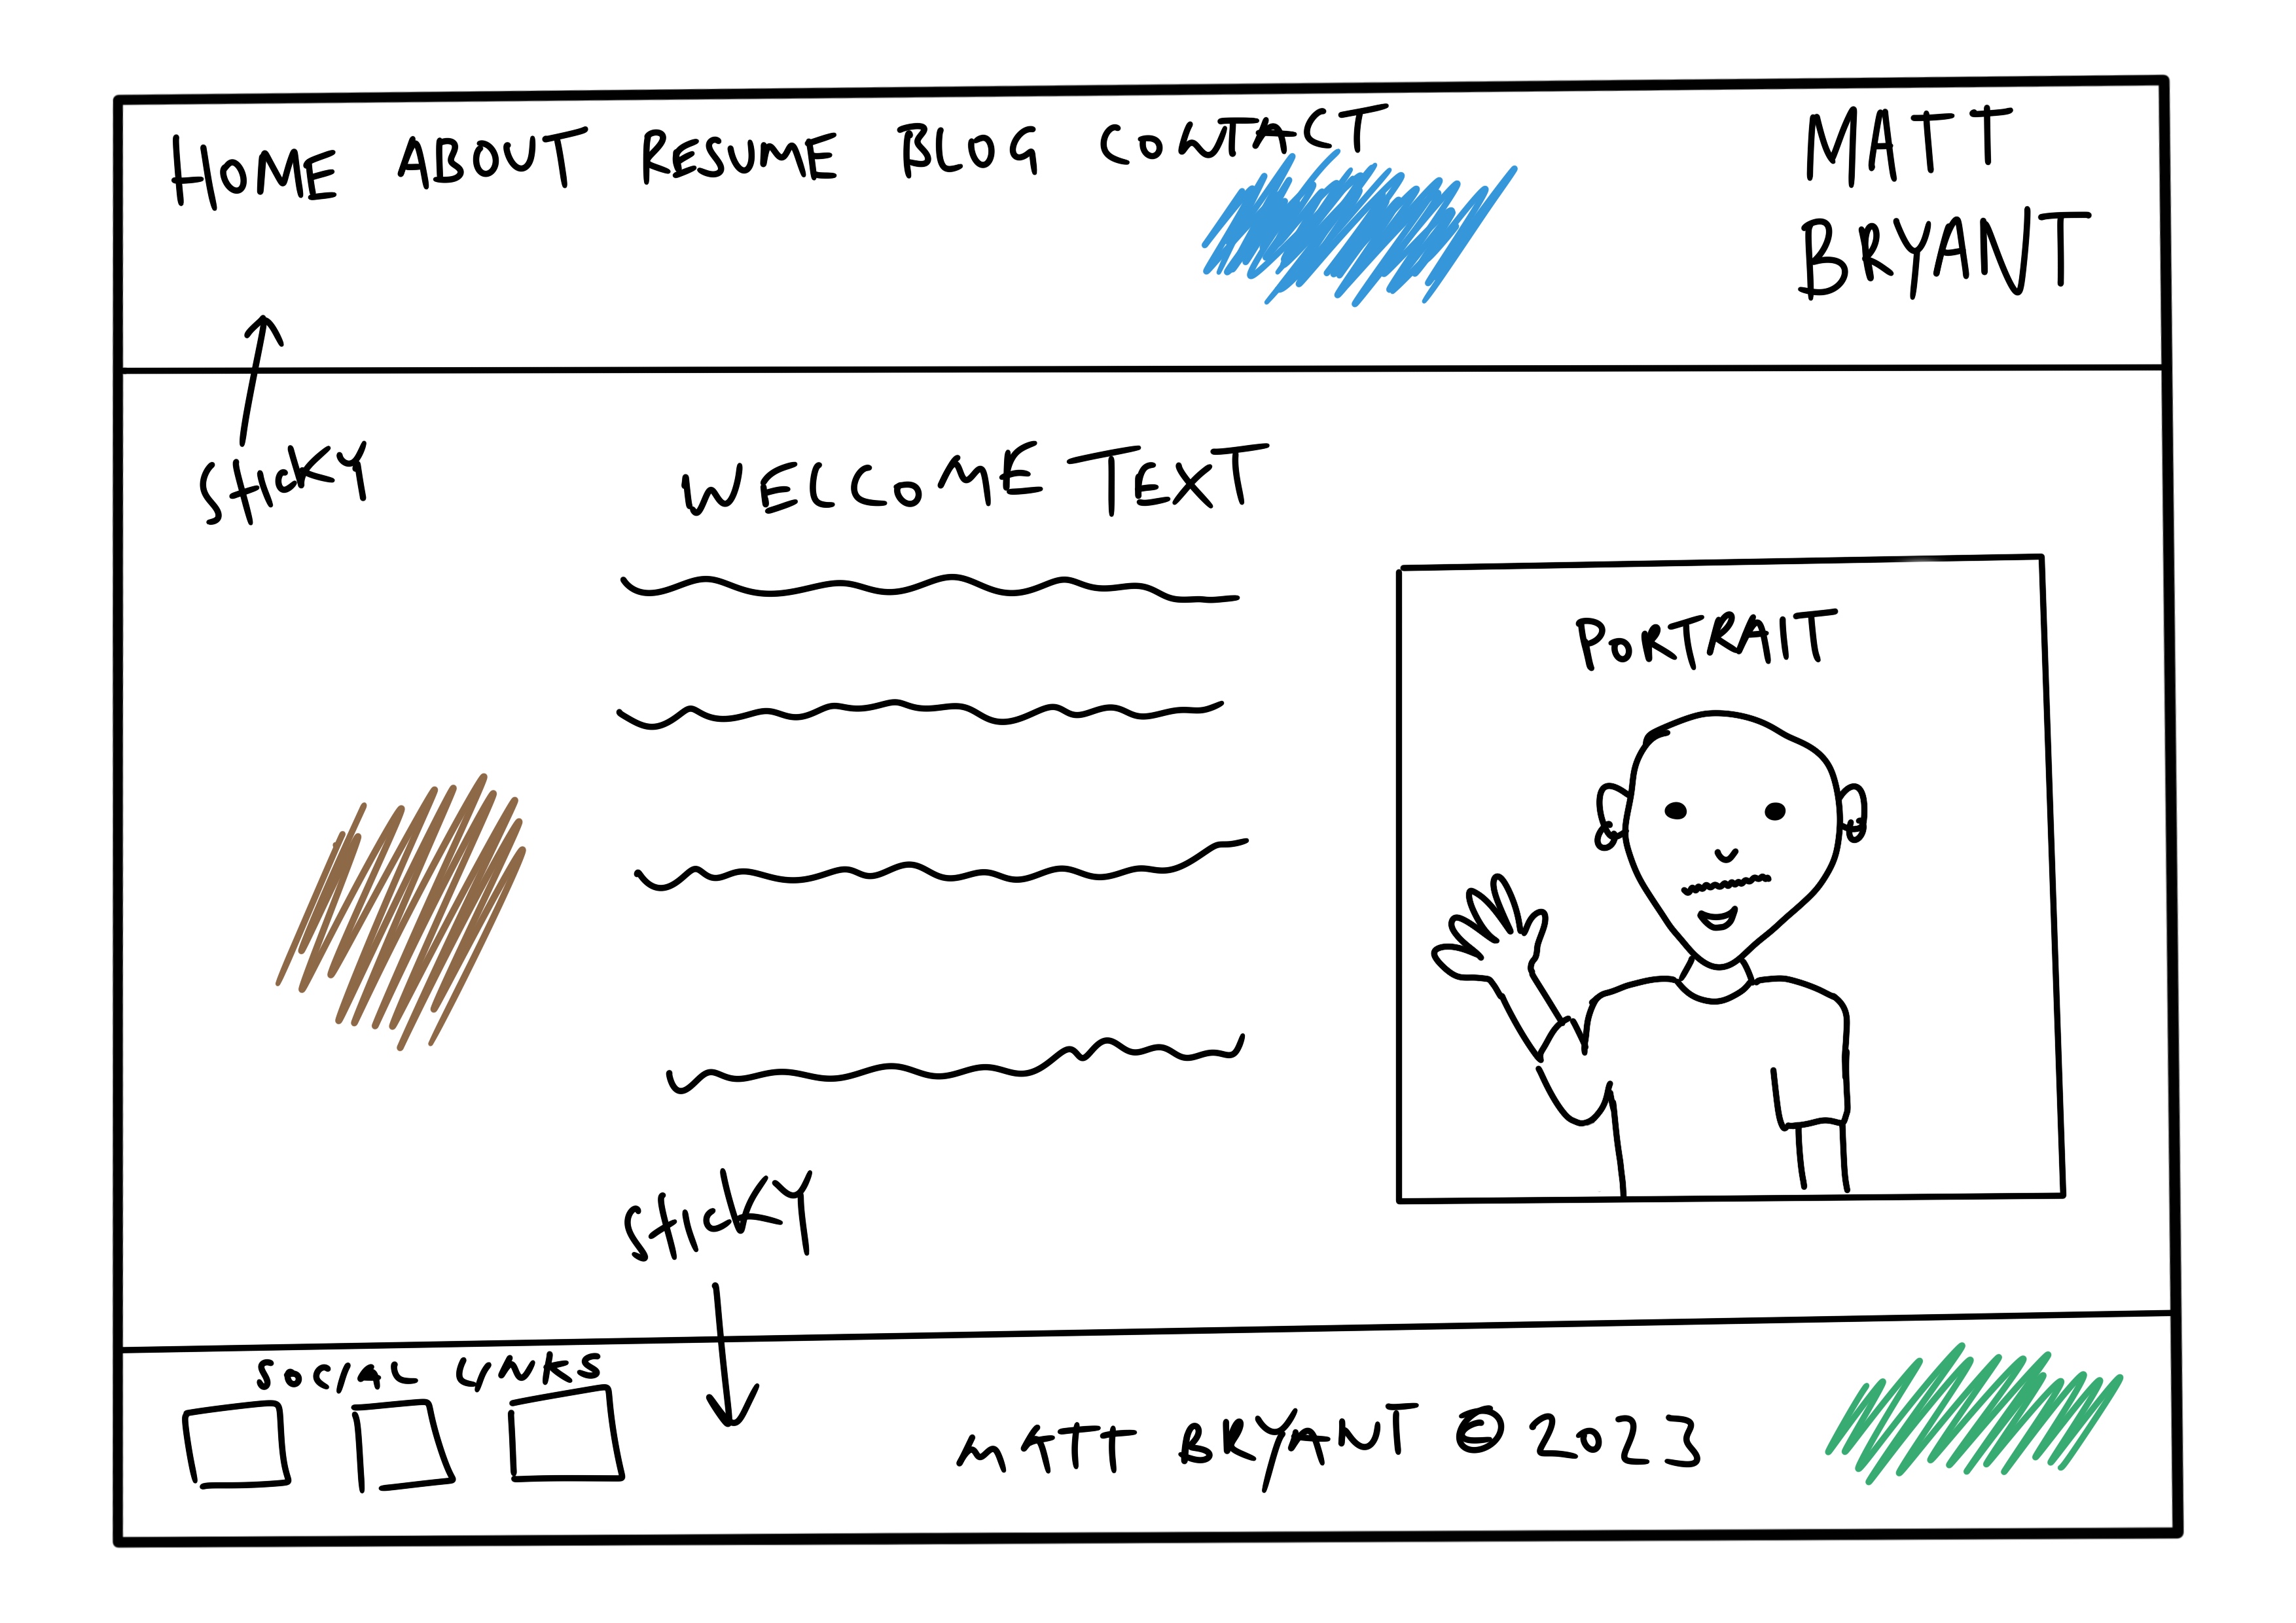 HOME ABOUT RESUME BLOG CONTACT
MATT
BRYANT
STICKY
WELCOME TEXT
PORTRAIT
STICKY
SOCIAL LINKS
MATT BRYANT © 2023